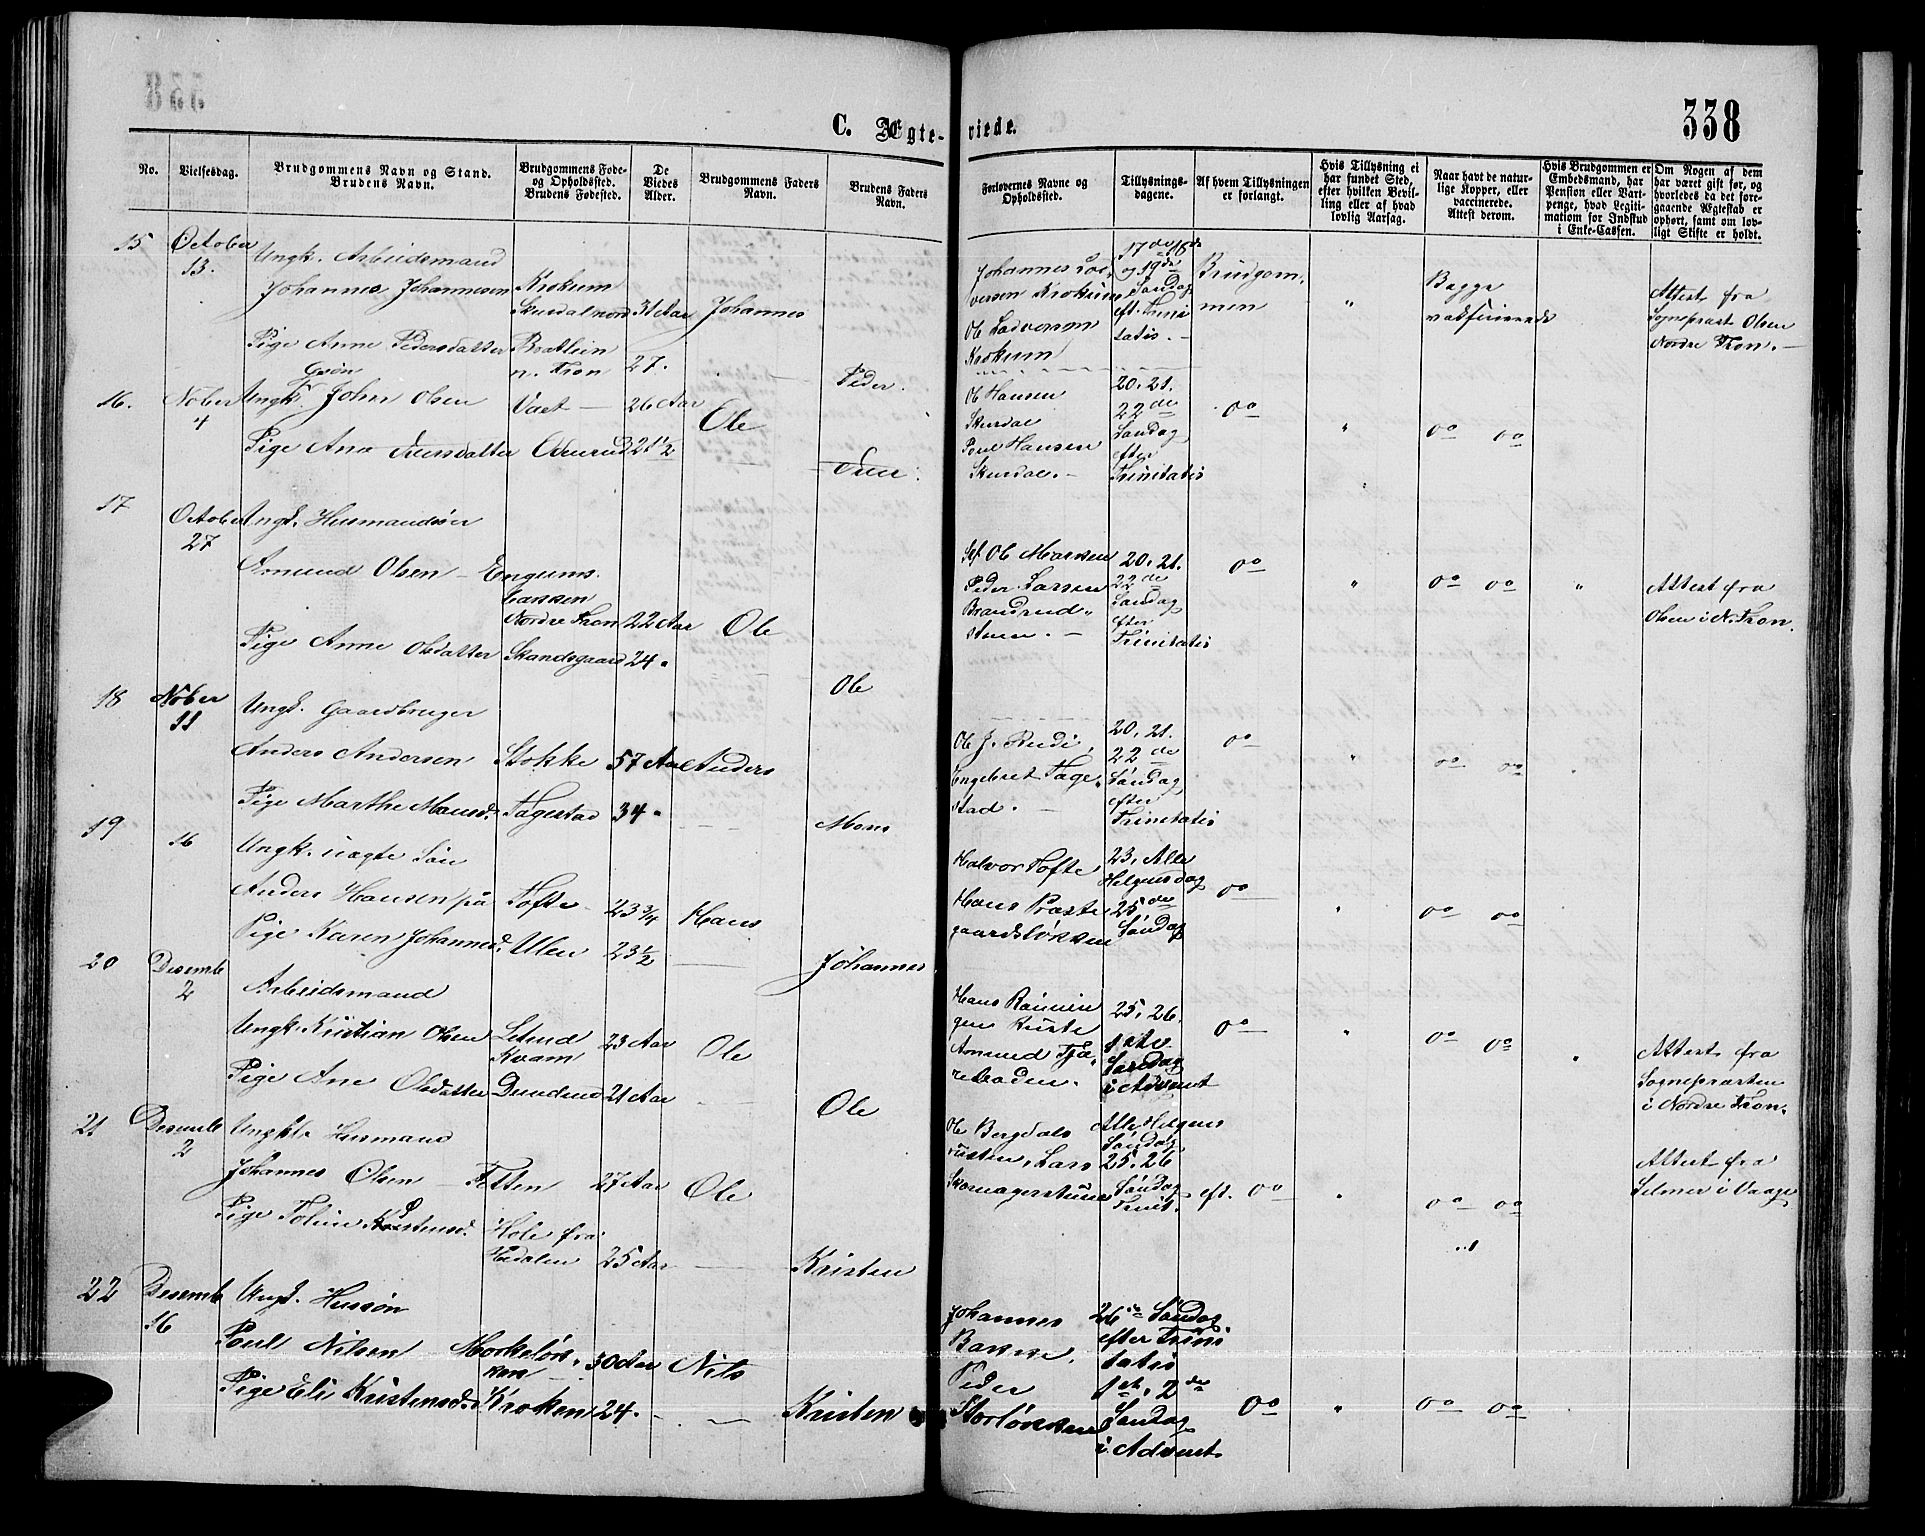 338
C. Ægte-
viede.
No.
Vielsesdag.
Brudgommens Navn og Stand.
Brudens Navn.
Brudgommens Føde-
og Opholdssted.
Brudens Fødested.
De
Viedes
Alder.
Brudgommens Faders
Navn.
Brudens Faders
Navn.
Forlovernes Navne og
Opholdssted.
Tillysnings-
dagene.
Af hvem Tillysningen
er forlangt.
Hvis Tillysning ei
har fundet Sted,
efter hvilken Bevil-
ling eller af hvad
lovlig Aarsag.
Naar havt de natur-
lige Kopper, eller
vaccinerede.
Attest derom.
Hvis Brudgommen er
Embedsmand, har
Pension eller Vart-
penge, hvad Legiti-
mation for Indskud
i Enke-Cassen.
Om Nogen af dem
har været gift før, og
hvorledes da det fore-
gaaende Ægteskab er
ophørt, samt om lov-
ligt Skifte er holdt.
15
October
13.
Ungk. Arbeidsmand
Johannes Johannesen
Krokum
Skurdal nord
31 Aar
Johannes
Pige Anne Pedersdatter
Bratlien
n. Fron
27.
Peder.
Johannes
Krokum
Krokum
17de 18de
og 19de
Søndag
eft. Trini
tatis.
Brudgom,
men
"
Begge
vakcinerede
Attest fra
Sognepræst Olsen
Nordre Fron.
16.
Nober
4
Ungk. John Olsen
26 Aar
Ole
Pige Ane
21 1/2
Ole Hansen
Skurdal
Poul Hansen
Skurdal.
20, 21.
22de
Søndag
efter
Trinitatis
do
"
do do
17
October
27
Ungk. Husmandssøn
Amund Olsen
Engums.
bakken
Nordre Fron
22 Aar
Ole
Pige Anne Olsdatter
Skandsgaard
24.
Ole
Peder Larsen
Brandrud
stuen.
20, 21.
22de
Søndag
efter
Trinitatis
do
"
do do
"
Attest fra
Olsen i N. Fron.
18
Nober
11
Ungk. Gaardbruger
Anders Andersen
Stokke
57 Aar
Anders
Pige Marthe Monsd.
Tagestad
34
Mons
Ole J. Rudi,
Engebret Tage,
stad.
20, 21.
22de
Søndag
efter
Trinitatis
do
"
do do
19
16
Ungk. uægte Søn
Anders Hansen på
Tofte
23 3/4
Hans
Pige Karen Johannesd.
Ulen
23 1/2
Johannes
Halvor Tofte
Hans Præste
gaardsløkken
23, Alle
Helgensdag
25de
Søndag
do
"
do do
20
Desemb
2
Arbeidsmand
Ungk. Kristian Olsen
Kvam
23 Aar
Ole
Pige Ane Olsdatter
21 Aar
Ole
Hans
Amund
25, 26.
1ste
Søndag
i Advent
do
"
do do
Attest fra
Sognepræsten
i Nordre Fron.
21
Desemb
2
Husmand
Johannes Olsen
27 Aar
Ole
Pige
Hole fra
Hedalen
25 Aar
Kristen
Ole Bergdals
Lars
Skomagerstuen
Alle Helgens
Søndag,
25, 26
Søndag eft.
Trinit.
do
"
do do
Attest fra
Selmer i Vaage
22
Desemb
16
Ungk. Hussøn
Poul Nilsen
30 Aar
Nils
Pige Eli Kristensd.
Kroken
24.
Kristen
Johannes
Bakke,
Peder
Storløkken
26de Søndag
efter Trini
tatis
1ste, 2den
Søndag
i Advent
do
"
do do